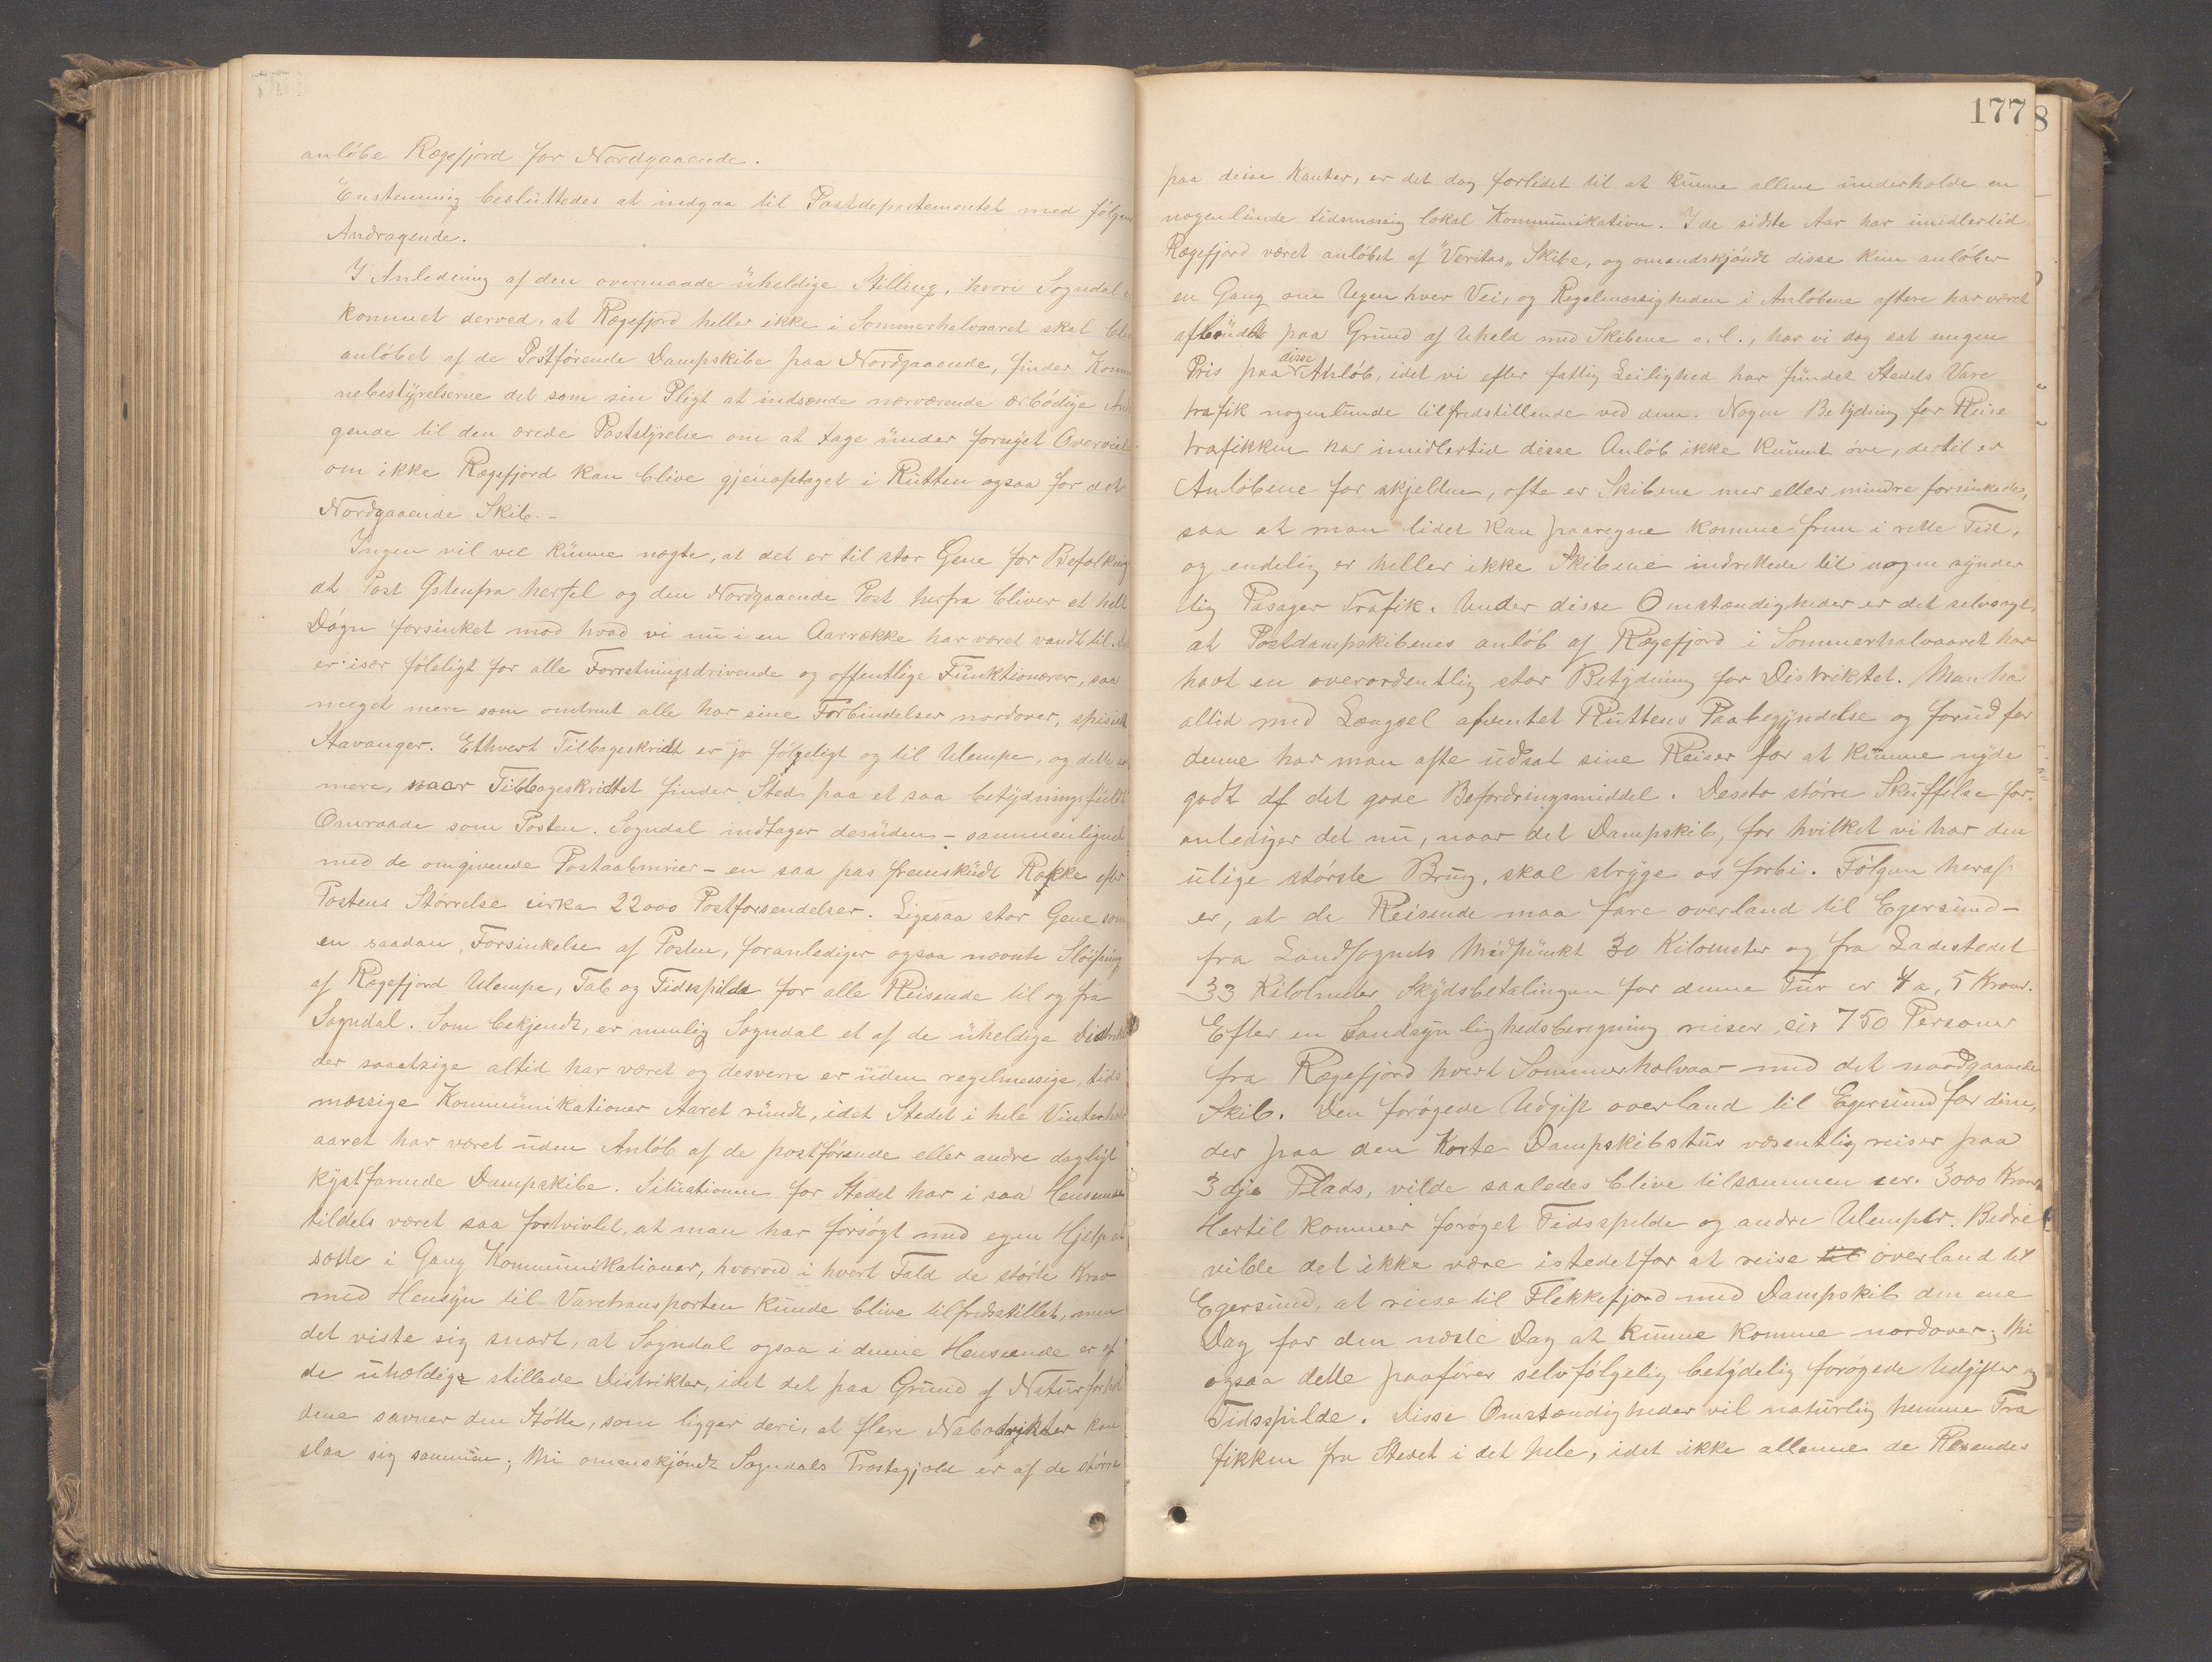 anløbe Rægefjord for Nordgaaende.
Enstemmig besluttedes at indgaa til Postdepartementet med følgende
Andragende.
I Anledning af den overmaade uheldige Stilling, hvori Sogndal er
kommet derved, at Rægefjord heller ikke i Sommerhalvaaret skal blive
anløbet af de Postførende Dampskibe paa Nordgaaende, finder Kommu
nebestyrelserne det som sin Pligt at indsænde nærværende ærbødige Andra
gende til den ærede Poststyrelse om at tage under fornyet Overveielse
om ikke Rægefjord kan blive gjenoptaget i Rutten ogsaa for det
Nordgaaende Skib.-
Ingen vil vel kunne nægte, at det er til stor Gene for Befolkning
at Post Østenfra hertil og den Nordgaaende Post herfra bliver et helt
Døgn forsinket mod hvad vi nu i en Aarrække har været vandt til. Det
er især føleligt for alle Forretningsdrivende og offentlige Funktionærer, saa
meget mere som omtrent alle har sine Forbindelser nordover, specielt
Stavanger. Ethvert Tilbageskridt er jo føleligt og til Ulempe, og dette
mere, naar Tilbageskridtet finder Sted paa et saa betydningsfuldt
Omraade som Posten. Sogndal indtager desuden - sammenlignet
med de omgivende Postaabnerier - en saa pas fremskudt Række efter
Postens Størrelse cirka 22000 Postforsendelser. Ligesaa stor Gene som
en saadan Forsinkelse af Posten, foranlediger ogsaa nævnte Sløifning
af Rægefjord Ulempe, Tab og Tidsspilde for alle Reisende til og fra
Sogndal. Som bekjendt, er nemlig Sogndal et af de uheldige Distrikter
der saaatsige altid har været og desverre er uden regelmessige, tids
mæssige Kommunikationer Aaret rundt, idet Stedet i hele Vinterhalv
aaret har været uden Anløb af de postførende eller andre dagligt
kystfarende Dampskibe. Situationen for Stedet har i saa Henseende
tildels været saa fortvivlet, at man har forsøgt med egen Hjelp at
sætte i Gang Kommunikationer, hvorved i hvert Fald de største Krav
med Hensyn til Varetransporten kunde blive tilfredsstillet, men
det viste sig snart, at Sogndal ogsaa i denne Henseende er af
de uheldige stillede Distrikter, idet det paa Grund af Naturforhol
dene savner den Støtte, som ligger deri, at flere Nabodistrikter kan
slaa sig sammen; Thi omenskjøndt Sogndals Præstegjæld er af de større
177 8
paa disse Kanter, er det dog forlidet til at kunne allene underholde en
nogenlunde tidsmæssig lokal Kommunikation. I de sidste Aar har imidlertid
Rægefjord været anløbet af "Veritas" Skibe, og omendskjøndt disse kun anløber
en Gang om Ugen hver Vei, og Regelmæssigheden i Anløbene oftere har været
afbrudt paa Grund af Uheld med Skibene o. l., har vi dog sat megen
Pris paa disse Anløb, idet vi efter fattig Leilighed har fundet Stedets Vare
trafik nogenlunde tilfredstillende ved dem. Nogen Betydning for Reise
trafikken har imidlertid disse Anløb ikke kunnet øve, dertil er
Anløbene for skjelden, ofte er Skibene mer eller mindre forsinkede,
saa at man lidet kan paaregne komme frem i rette Tid,
og endelig er heller ikke Skibene indrettede til nogen synder
lig Pasager Trafik. Under disse Omstændigheder er det selvsagt,
at Postdampskibenes anløb af Rægefjord i Sommerhalvaaret har
havt en overordentlig stor Betydning for Distriktet. Man har
altid med Længsel afventet Ruttens Paabegyndelse og forud for
denne har man ofte udsat sine Reiser for at kunne nyde
godt af det gode Befordringsmiddel. Desto større Skuffelse for-
anlediger det nu, naar det Dampskib, for hvilket vi har den
ulige største Brug, skal stryge os forbi. Følgen heraf
er, at de Reisende maa fare overland til Egersund -
fra Landsognets Midpunkt 30 Kilometer og fra Ladestedet
33 Kilometer Skydsbetalingen for denne Tur er 4 a, 5 Kroner.
Efter en Sandsynlighedsberegning reiser cir 750 Personer
fra Rægefjord hvert Sommerhalvaar med det nordgaaende
Skib. Den forøgede Udgift overland til Egersund for dem,
der paa den Korte Dampskibstur væsentlig reiser paa
3dje Plads, vilde saaledes blive tilsammen cir. 3000 Kroner
Hertil kommer forøget Tidsspilde og andre Ulemper. Bedre
vilde det ikke være istedetfor at reise til overland til
Egersund, at reise til Flekkefjord med Dampskib den ene
Dag for den næste Dag at kunne komme nordover; Thi
ogsaa dette paafører selvfølgelig betydelig forøgede Udgifter og
Tidsspilde. Disse Omstændigheder vil naturlig hemme Tra
fikken fra Stedet i det hele, idet ikke allenne de Resendes